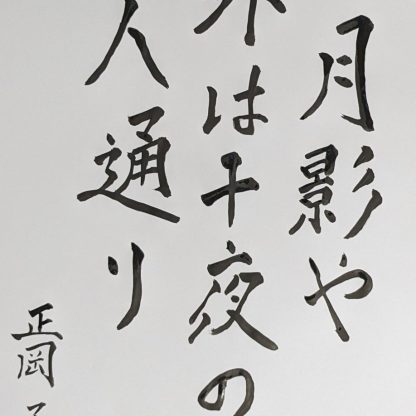 月影や
は十夜の
人通り
正岡